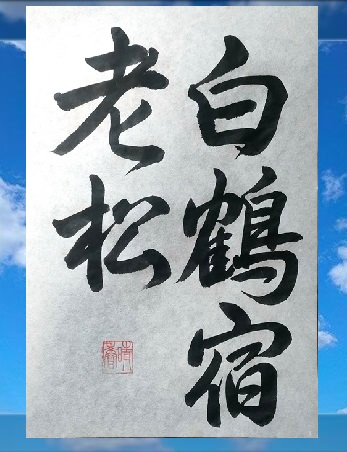 白鶴宿
老松